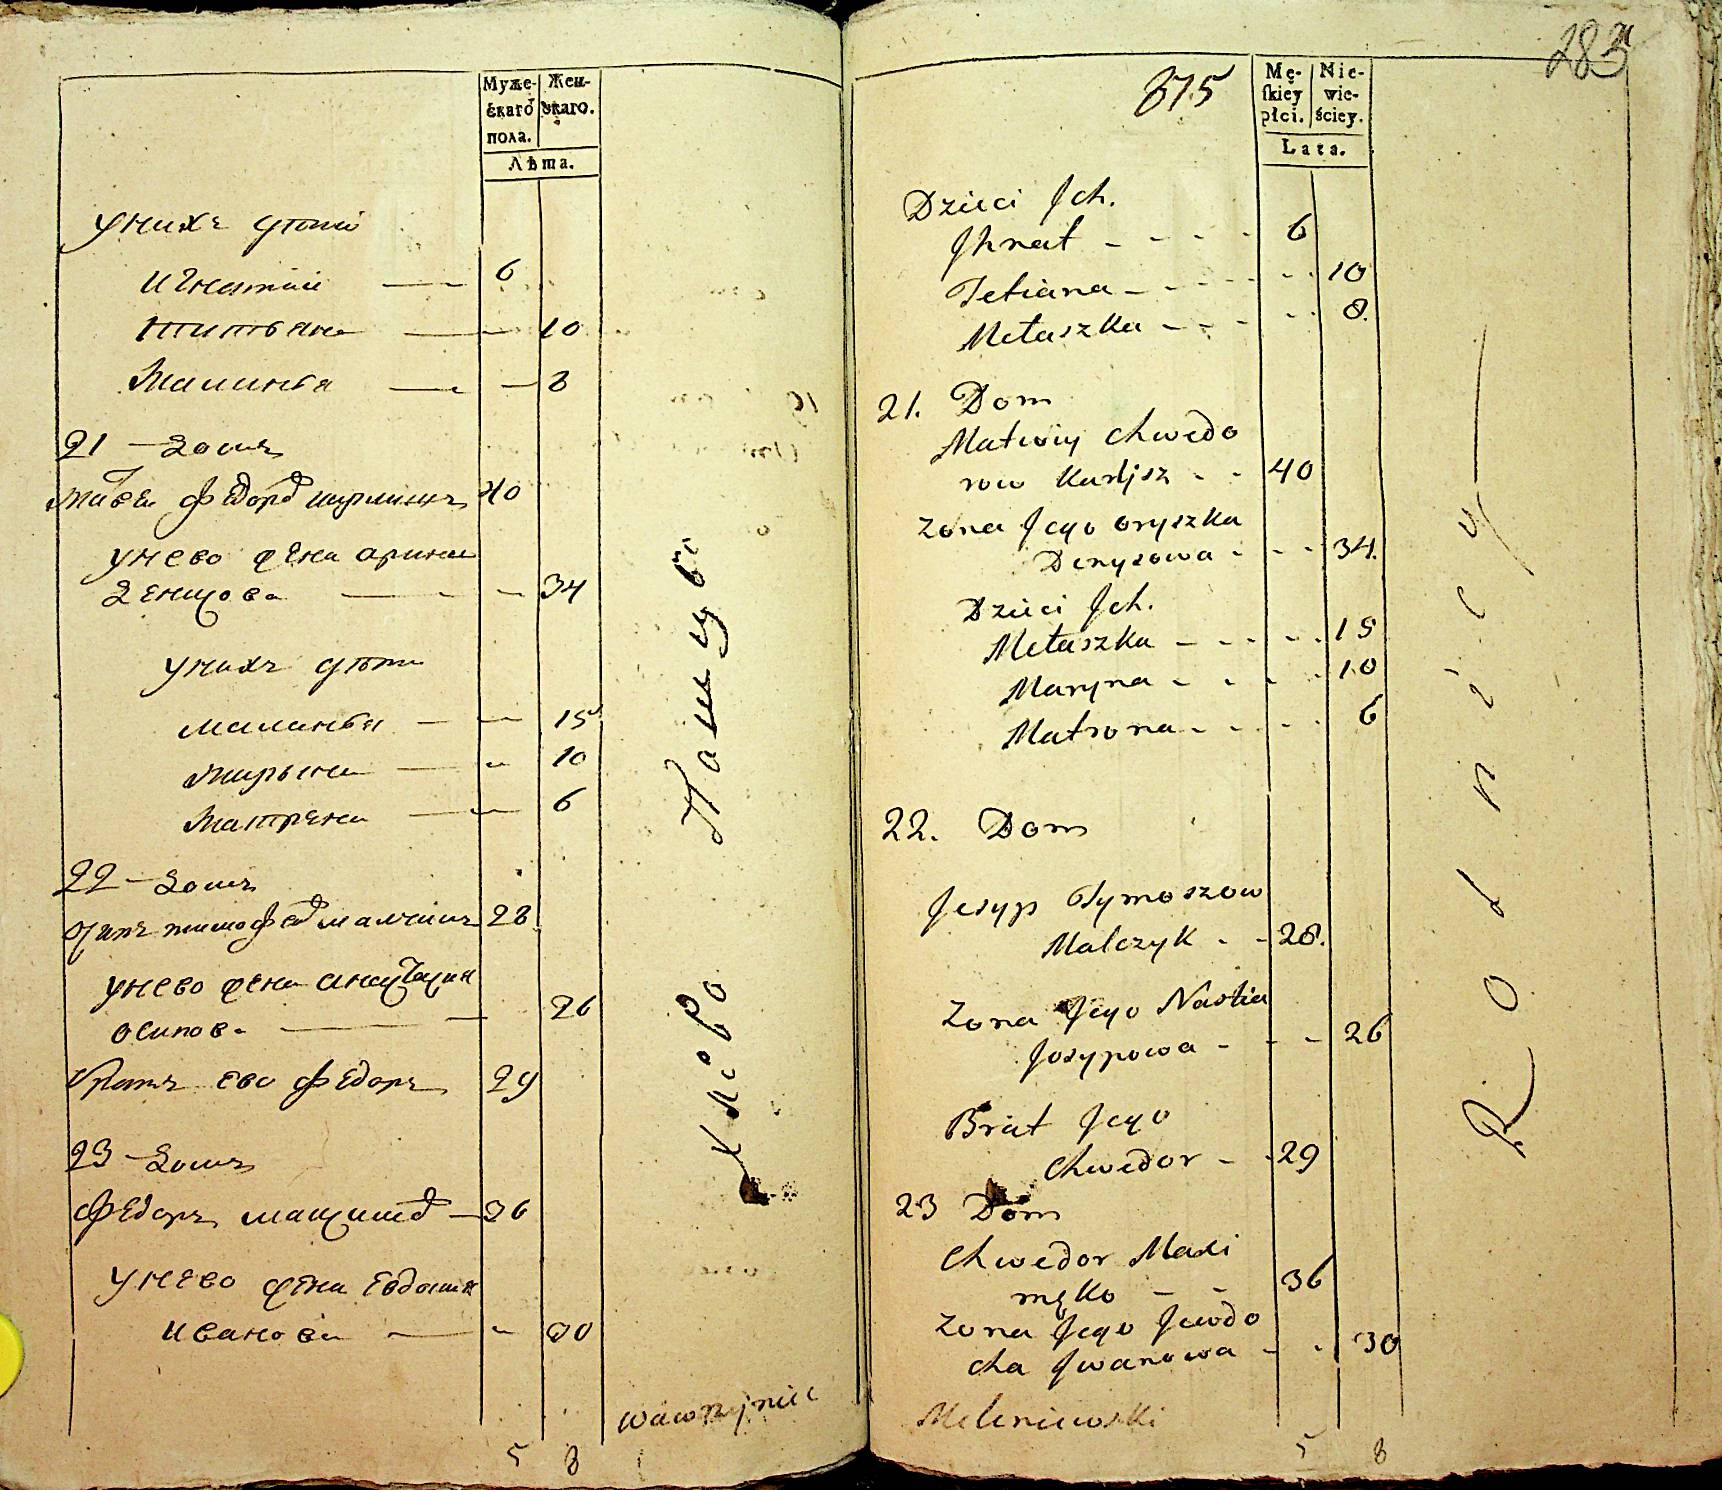 Муже-
скаго
пола.
Жен-
скаго.
Лѣта.
у нихъ дѣти
Игнатий — 6
Татьяна — 10
Маланья — 8
21 — домъ
Матвей Федоров 40
у нево жена Арина
Денисова — 34
у нихъ дѣти
Маланья — 15
Марьяна — 10
Матрена — 6
22 — домъ
Осипъ Тимофеев Малчикъ 28
у нево жена Анастасия
Осипова — 26
братъ ево Федоръ 29
23 — домъ
Федоръ — 36
у нево жена Евдокия
Иванова — 30
5 8
Wawrzyniec
283
875
Mę-
skiey
płci.
Nie-
wie-
ściey.
Lata.
Dzieci Jch.
Jhnat - - - - 6
Tetiana - - - - 10
Metaszka - - - - 8.
21. Dom
Matwiy Chwedo
row - - 40
Zona Jego Oryszka
Denysowa - - - 34.
Dzieci Jch.
Metaszka - - - - 15
Maryna - - - - 10
Matrona - - - - 6
22. Dom
Jesyp Tymoszow
Malczyk - - 28.
Zona Jego Nastia
Josypowa - - - 26
Brat Jego
Chwedor - - 29
23 Dom
Chwedor Maxi
męko - - 36
Zona Jego Jewdo
cha Jwanowa - - 30
Meleniewski
5 8